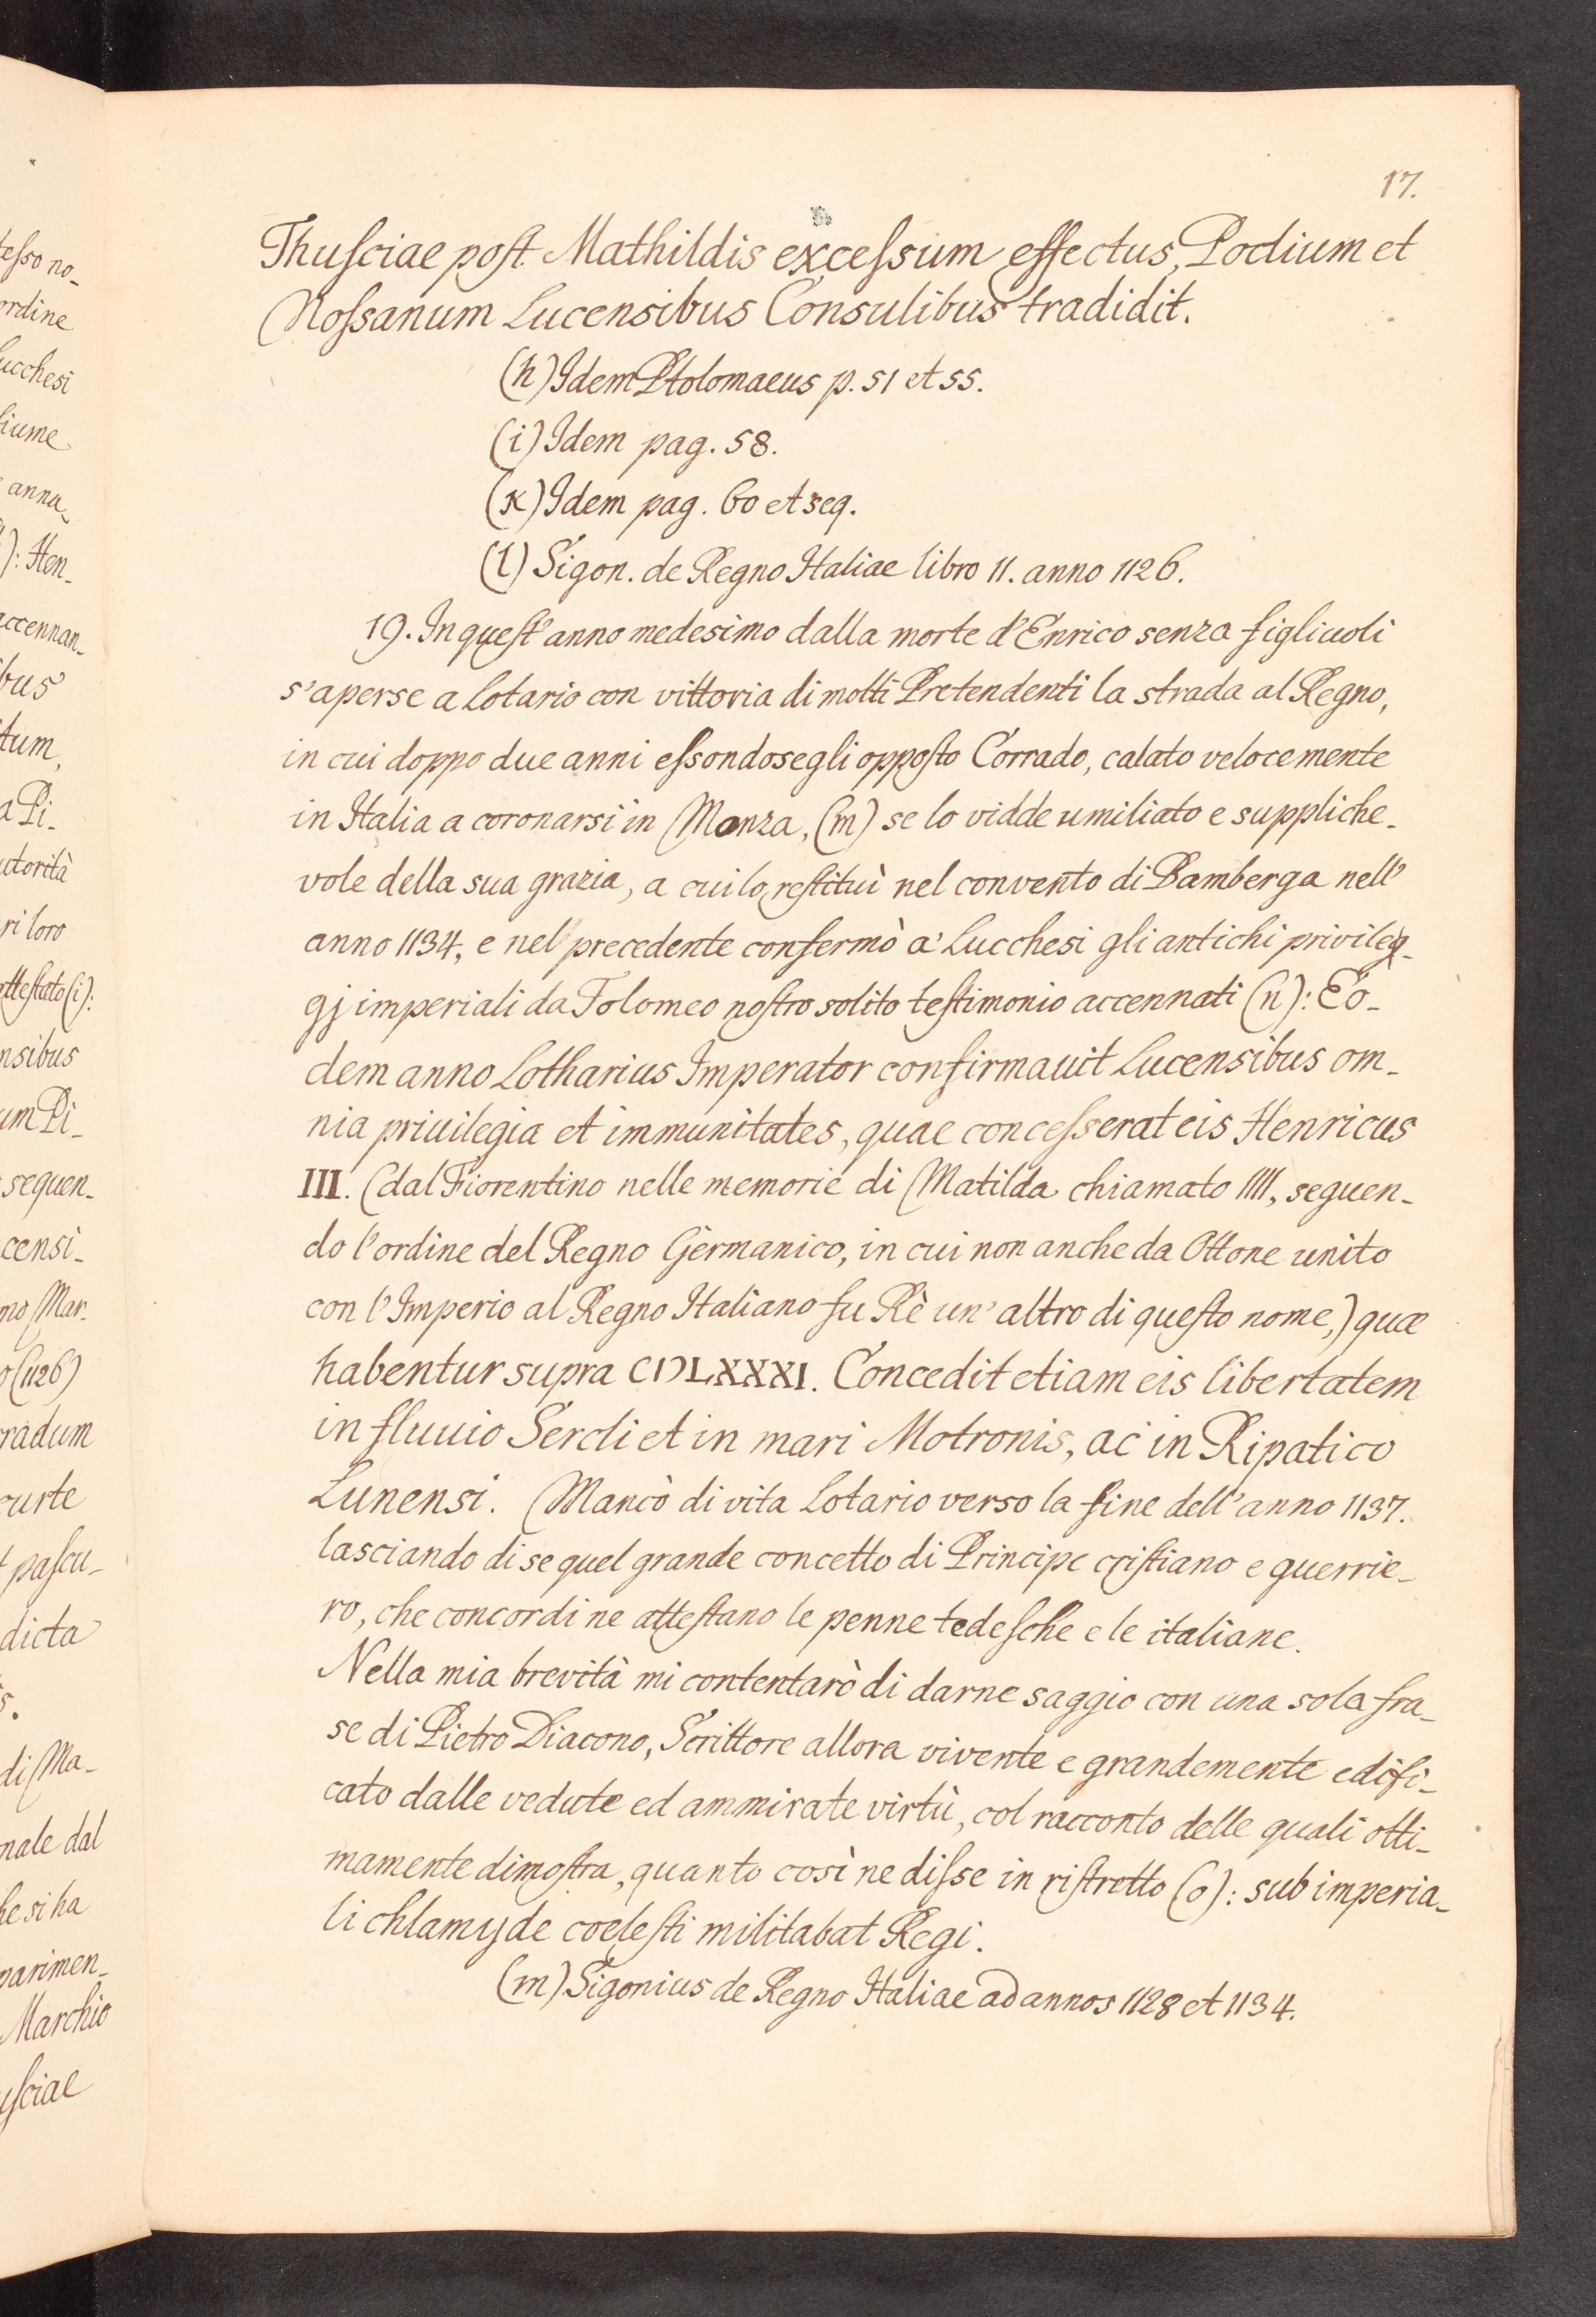 17.
Thusciae post Mathildis excessum effectus, Podium et
Nossanum Lucensibus Consulibus tradidit.
(h) Idem Ptolomaeus p. 51 et 55.
(i) Idem pag. 58.
(k) Idem pag. 60 et seq.
(l) Sigon. de Regno Italiae libro 11. anno 1126.
19. In quest'anno medesimo dalla morte d'Enrico senza figliuoli
s'aperse a Lotario con vittoria di molti Pretendenti la strada al Regno,
in cui doppo due anni essondosegli opposto Corrado, calato velocemente
in Italia a coronarsi in Monza, (m) se lo vidde umiliato e suppliche-
vole della sua grazia, a cui lo restituì nel convento di Bamberga nell'
anno 1134, e nel precedente confermò a' Lucchesi gli antichi privileg-
gj imperiali da Tolomeo nostro solito testimonio accennati (n): Eo-
dem anno Lotharius Imperator confirmauit Lucensibus om-
nia priuilegia et immunitates, quae concesserat eis Henricus
III. (dal Fiorentino nelle memorie di Matilda chiamato IIII, seguen-
do l'ordine del Regno Germanico, in cui non anche da Ottone unito
con l'Imperio al Regno Italiano fu Rè un'altro di questo nome,) quæ
habentur supra CIↃLXXXI. Concedit etiam eis libertatem
in fluuio Sercli et in mari Motronis, ac in Ripatico
Lunensi. Mancò di vita Lotario verso la fine dell'anno 1137.
lasciando di se quel grande concetto di Principe cristiano e guerrie-
ro, che concordi ne attestano le penne tedesche e le italiane.
Nella mia brevità mi contentarò di darne saggio con una sola fra-
se di Pietro Diacono, Scrittore allora vivente e grandemente edifi-
cato dalle vedute ed ammirate virtù, col racconto delle quali otti-
mamente dimostra, quanto così ne disse in ristretto (o): sub imperia-
li chlamyde coelesti militabat Regi.
(m) Sigonius de Regno Italiae ad annos 1128 et 1134.